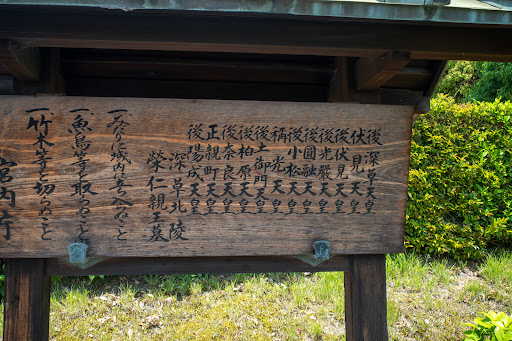 後深草天皇
伏見天皇
後伏見天皇
後光嚴天皇
後圓融天皇
後小松天皇
稱光天皇
後土御門天皇
後柏原天皇
後奈良天皇
正親町天皇
後陽成天皇
深草北陵
榮仁親王墓
一みだりに域内に立入らぬこと
一魚鳥等を取らぬこと
一竹木等を切らぬこと
宮内庁